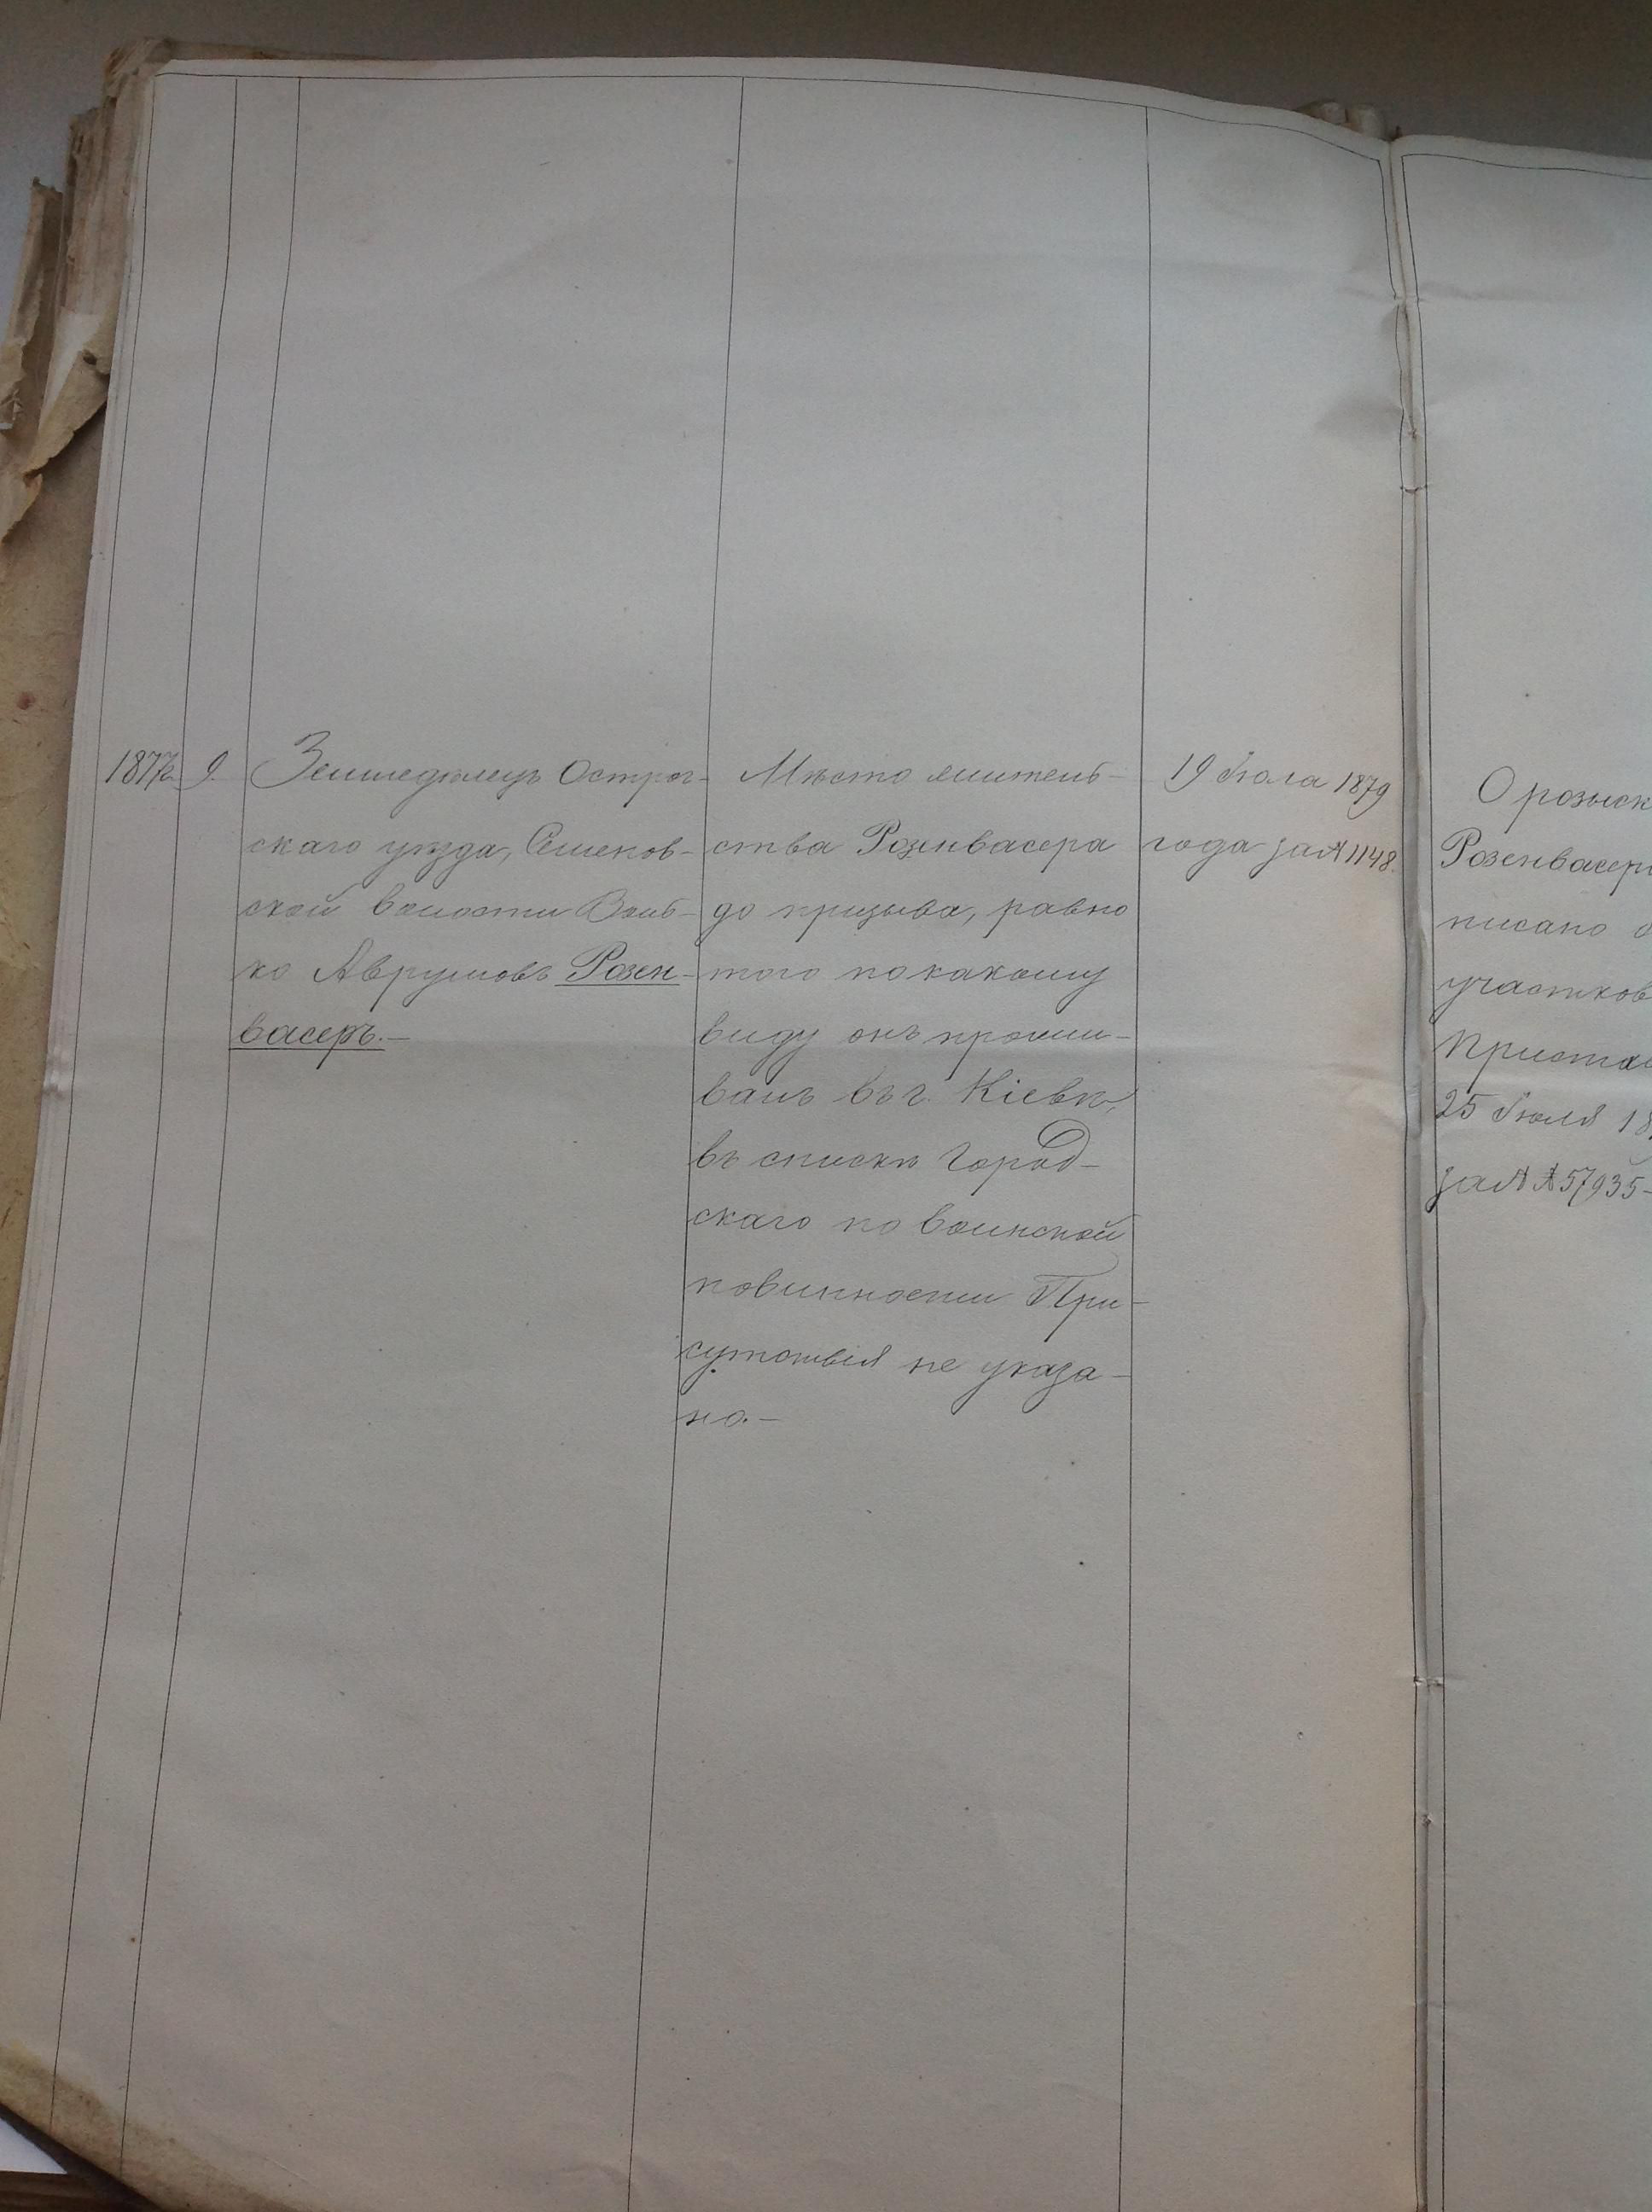 1877г. 9.
Земледѣлецъ Острог-
скаго уѣзда, Семенов-
ской волости Воль-
ко Аврумовъ Розен-
васеръ.—
Мѣсто житель-
ства Розенвасера
до призыва, равно
того по какому
виду онъ прожи-
валъ въ г. Кіевѣ,
въ спискѣ Город-
скаго по воинской
повинности При-
сутствія не указа-
но.—
19 Іюля 1879
года за № 1148.
О розыск
Розенвасер
писано
участков
Приста
25 Іюля 18
за № 57935-